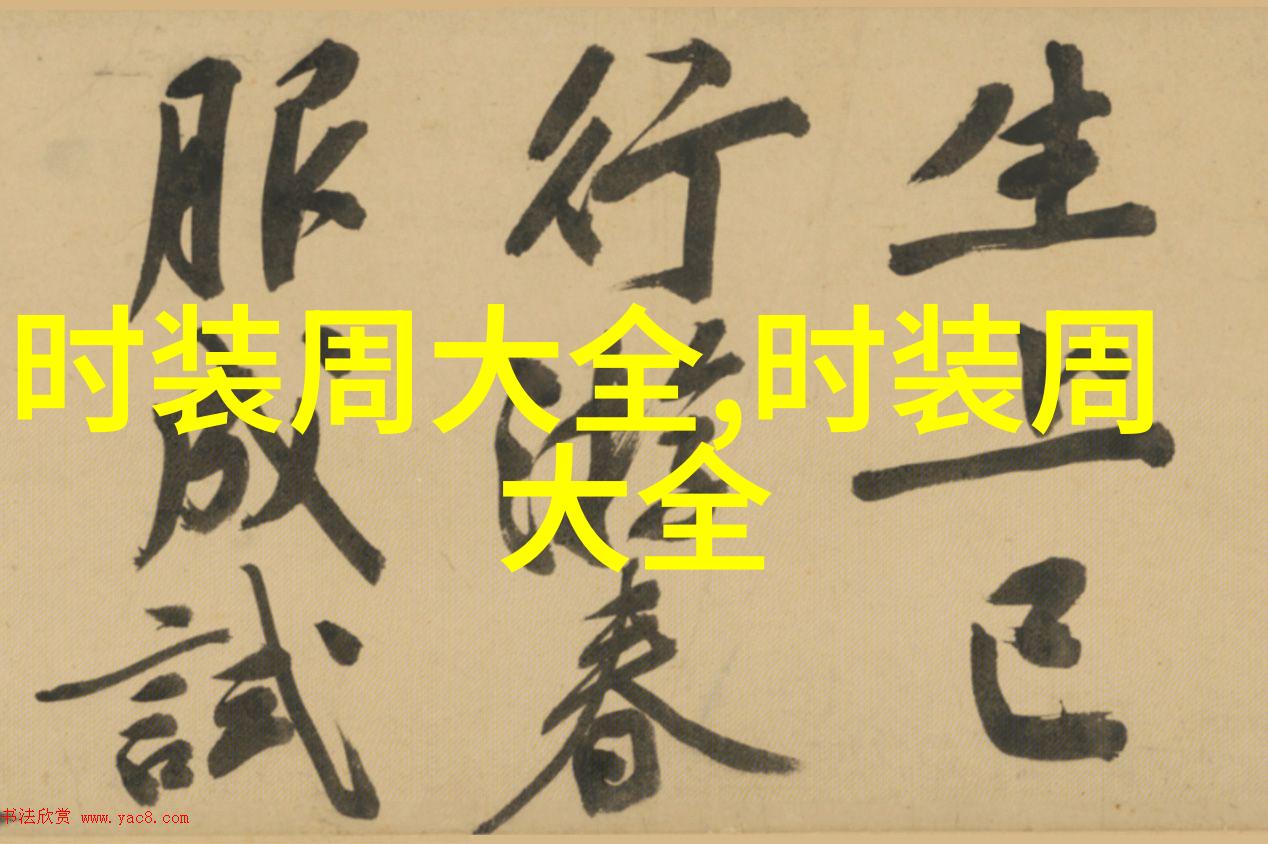 生上巳
行游春
服成試
时装周大全,时装周
大全
书法欣赏 www.yac8.com